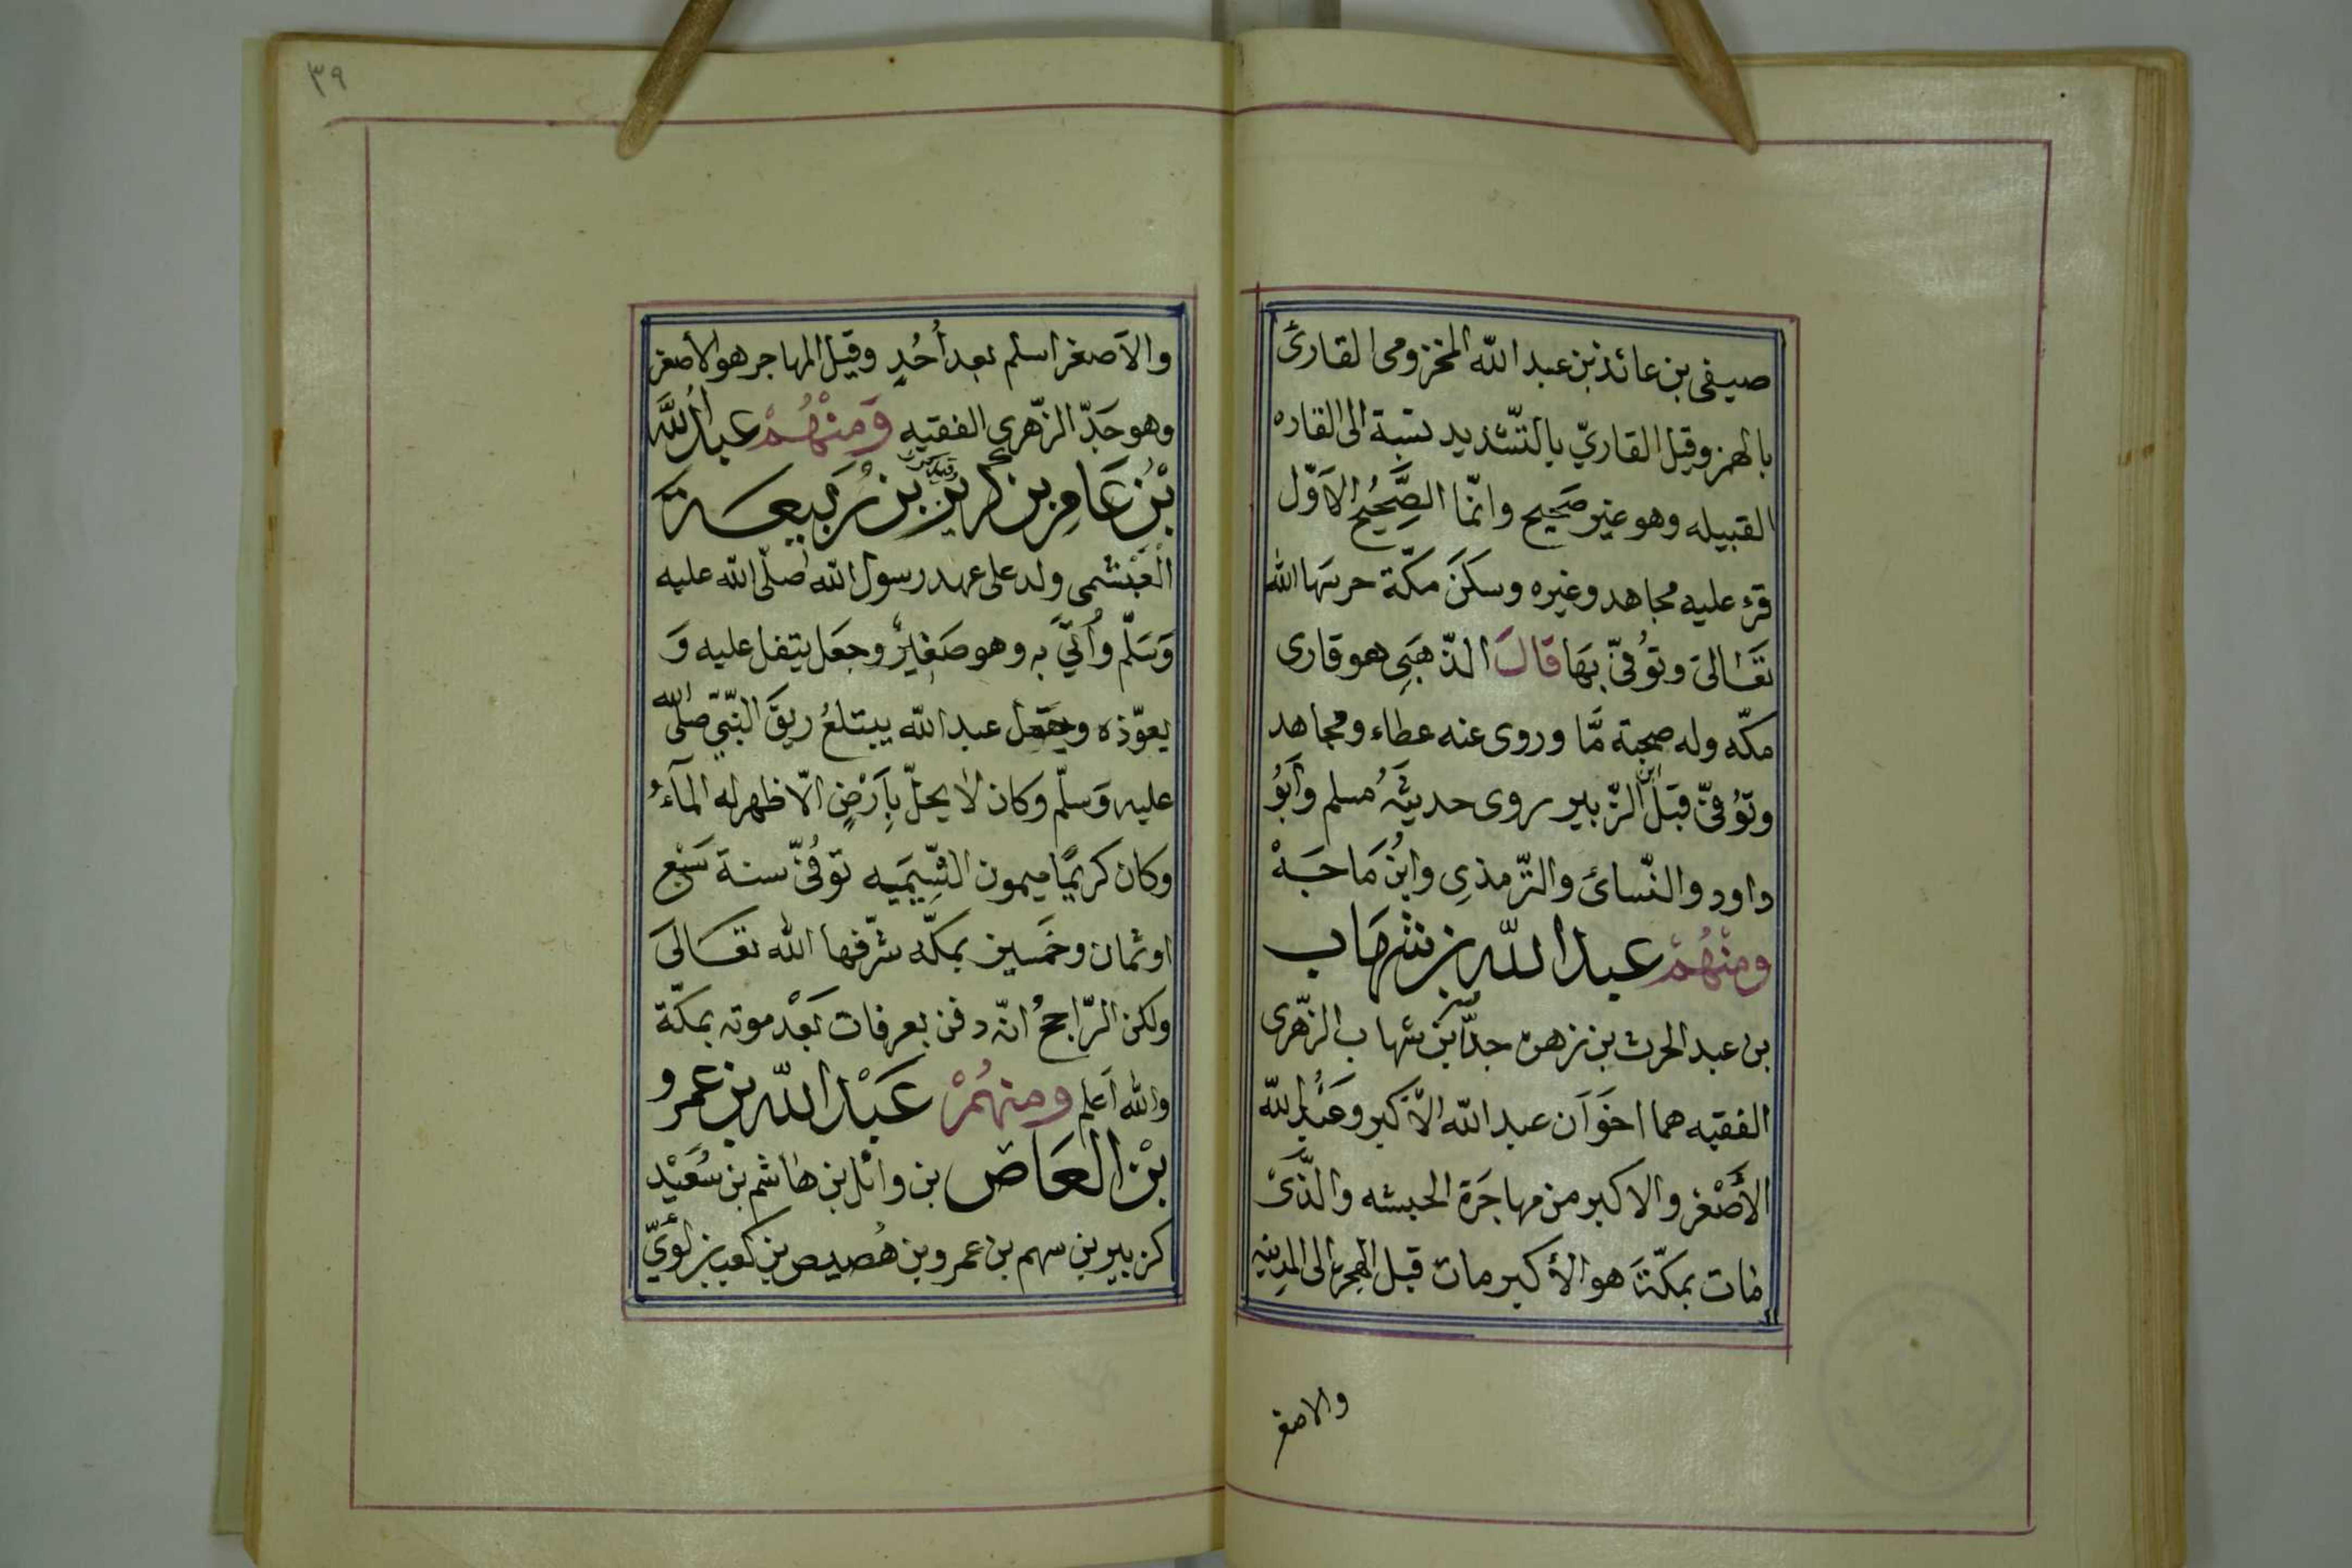 صيفى بن عائذ بن عبد الله المخزومى القارئ
بالهمز وقيل القاريّ بالتّشديد نسبة الى القاره
القبيله وهو غير صَحيح وانّما الصَّحِيحُ الاَوّل
قرء عليه مجاهد وغيره وسكَنَ مكّة حرسَها الله
تَعَالىَ وتوُفىّ بهَا قَالَ الذّهَبَىِ هو قارى
مكّه وله صحبَة مَّا وروى عنه عطاء ومجاهد
وتوُفىّ قبَلَ ابن الزّبير روى حديثَهُ مسلم وَابَوُ
داود والنّسائ والترّمذىِ وابنُ مَاجَهْ
ومنْهُمْ عبد الله بن شهَاب
بن عبد الحرث بن زهره جدّ بن شهاب الزّهرى
الفقيه هما اخَوَان عبد الله الاَكبر وعَبْدُ الله
الأَصْغر والاكبر من مهاجَرَة الحبشه والذّىْ
مَات بمكّةَ هو الأكبر مات قبل الهجرة الى المدينه
والاصغر
٣٩
والاَصغر اسلم بعد أُحُدٍ وقيل المهاجر هو الأصغر
وهو جَدّ الزّهرى الفقيه وَمِنْهُمْ عبدُ اللَّه
بْنُ عَامِر بن كُريْز بن رَبيعَة
الْعَبْشمى ولد على عهد رسول الله صلّى الله عليه
وَسَلّم وأُتىَّ به وهو صَغيرٌ وجعَل يتفل عليه وَ
يعوّذه وجعَل عبد الله يبتلعُ ريقَ النّبىّ صلى الله
عليه وَسلّم وكان لا يحلّ بِاَرْضٍ الّا ظهر له المآءُ
وكان كريمًا ميمون الشِّيمَيه توُفىّ سنة سَبْع
اوثمان وخَمسين بمكّه شرّفها الله تعَالىَ
ولكن الرّاجحُ انّه دفن بعرفات بَعْد موته بمكّة
والله اَعلم ومنهُمْ عَبْد الله بن عمرو
بْن العَاصْ بن وائل بن هَاشم بن سُعَيْد
كزبير بن سهم بن عمرو بن هُصيص بن كعب بن لؤَىّ